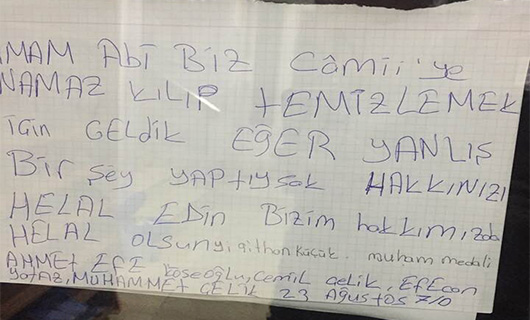 İMAM Abi Biz Câmii'ye
NAMAZ KILIP tEMİZLEMEK
için GELdik EĞER YANLIŞ
Bir şey YAPtIYSAK HAKKINIZI
HELAL EDin Bizim hakkımızda
HELAL OLSUN yiğithan Kaçak. muham medali
AHMET EFE Köseoğlu, Cemil çelik, EFE can
MUHAMMET ÇELİK 23 Ağustos